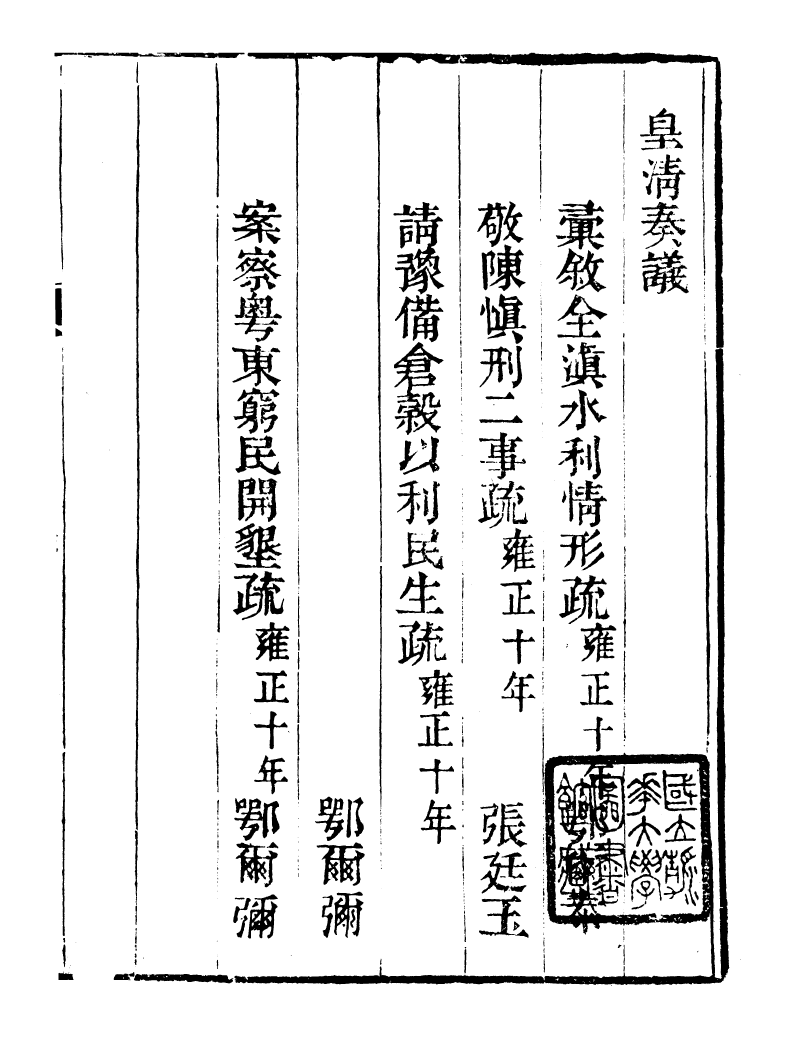 皇清奏議
彙敘全滇水利情形疏雍正十年鄂爾泰
敬陳慎刑二事疏雍正十年 張廷玉
請豫備倉穀以利民生疏雍正十年
鄂爾彌
案察粵東窮民開墾疏雍正十年鄂爾彌
國立
大學
圖書